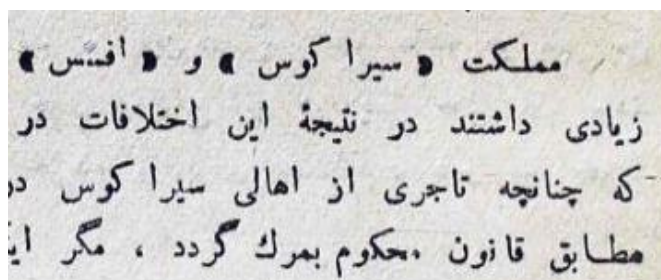 مملکت « سیرا کوس » و « افسس »
زیادی داشتند در نتیجهٔ این اختلافات در
که چنانچه تاجری از اهالی سیرا کوس در
مطابق قانون محکوم بمرك گردد ، مگر این